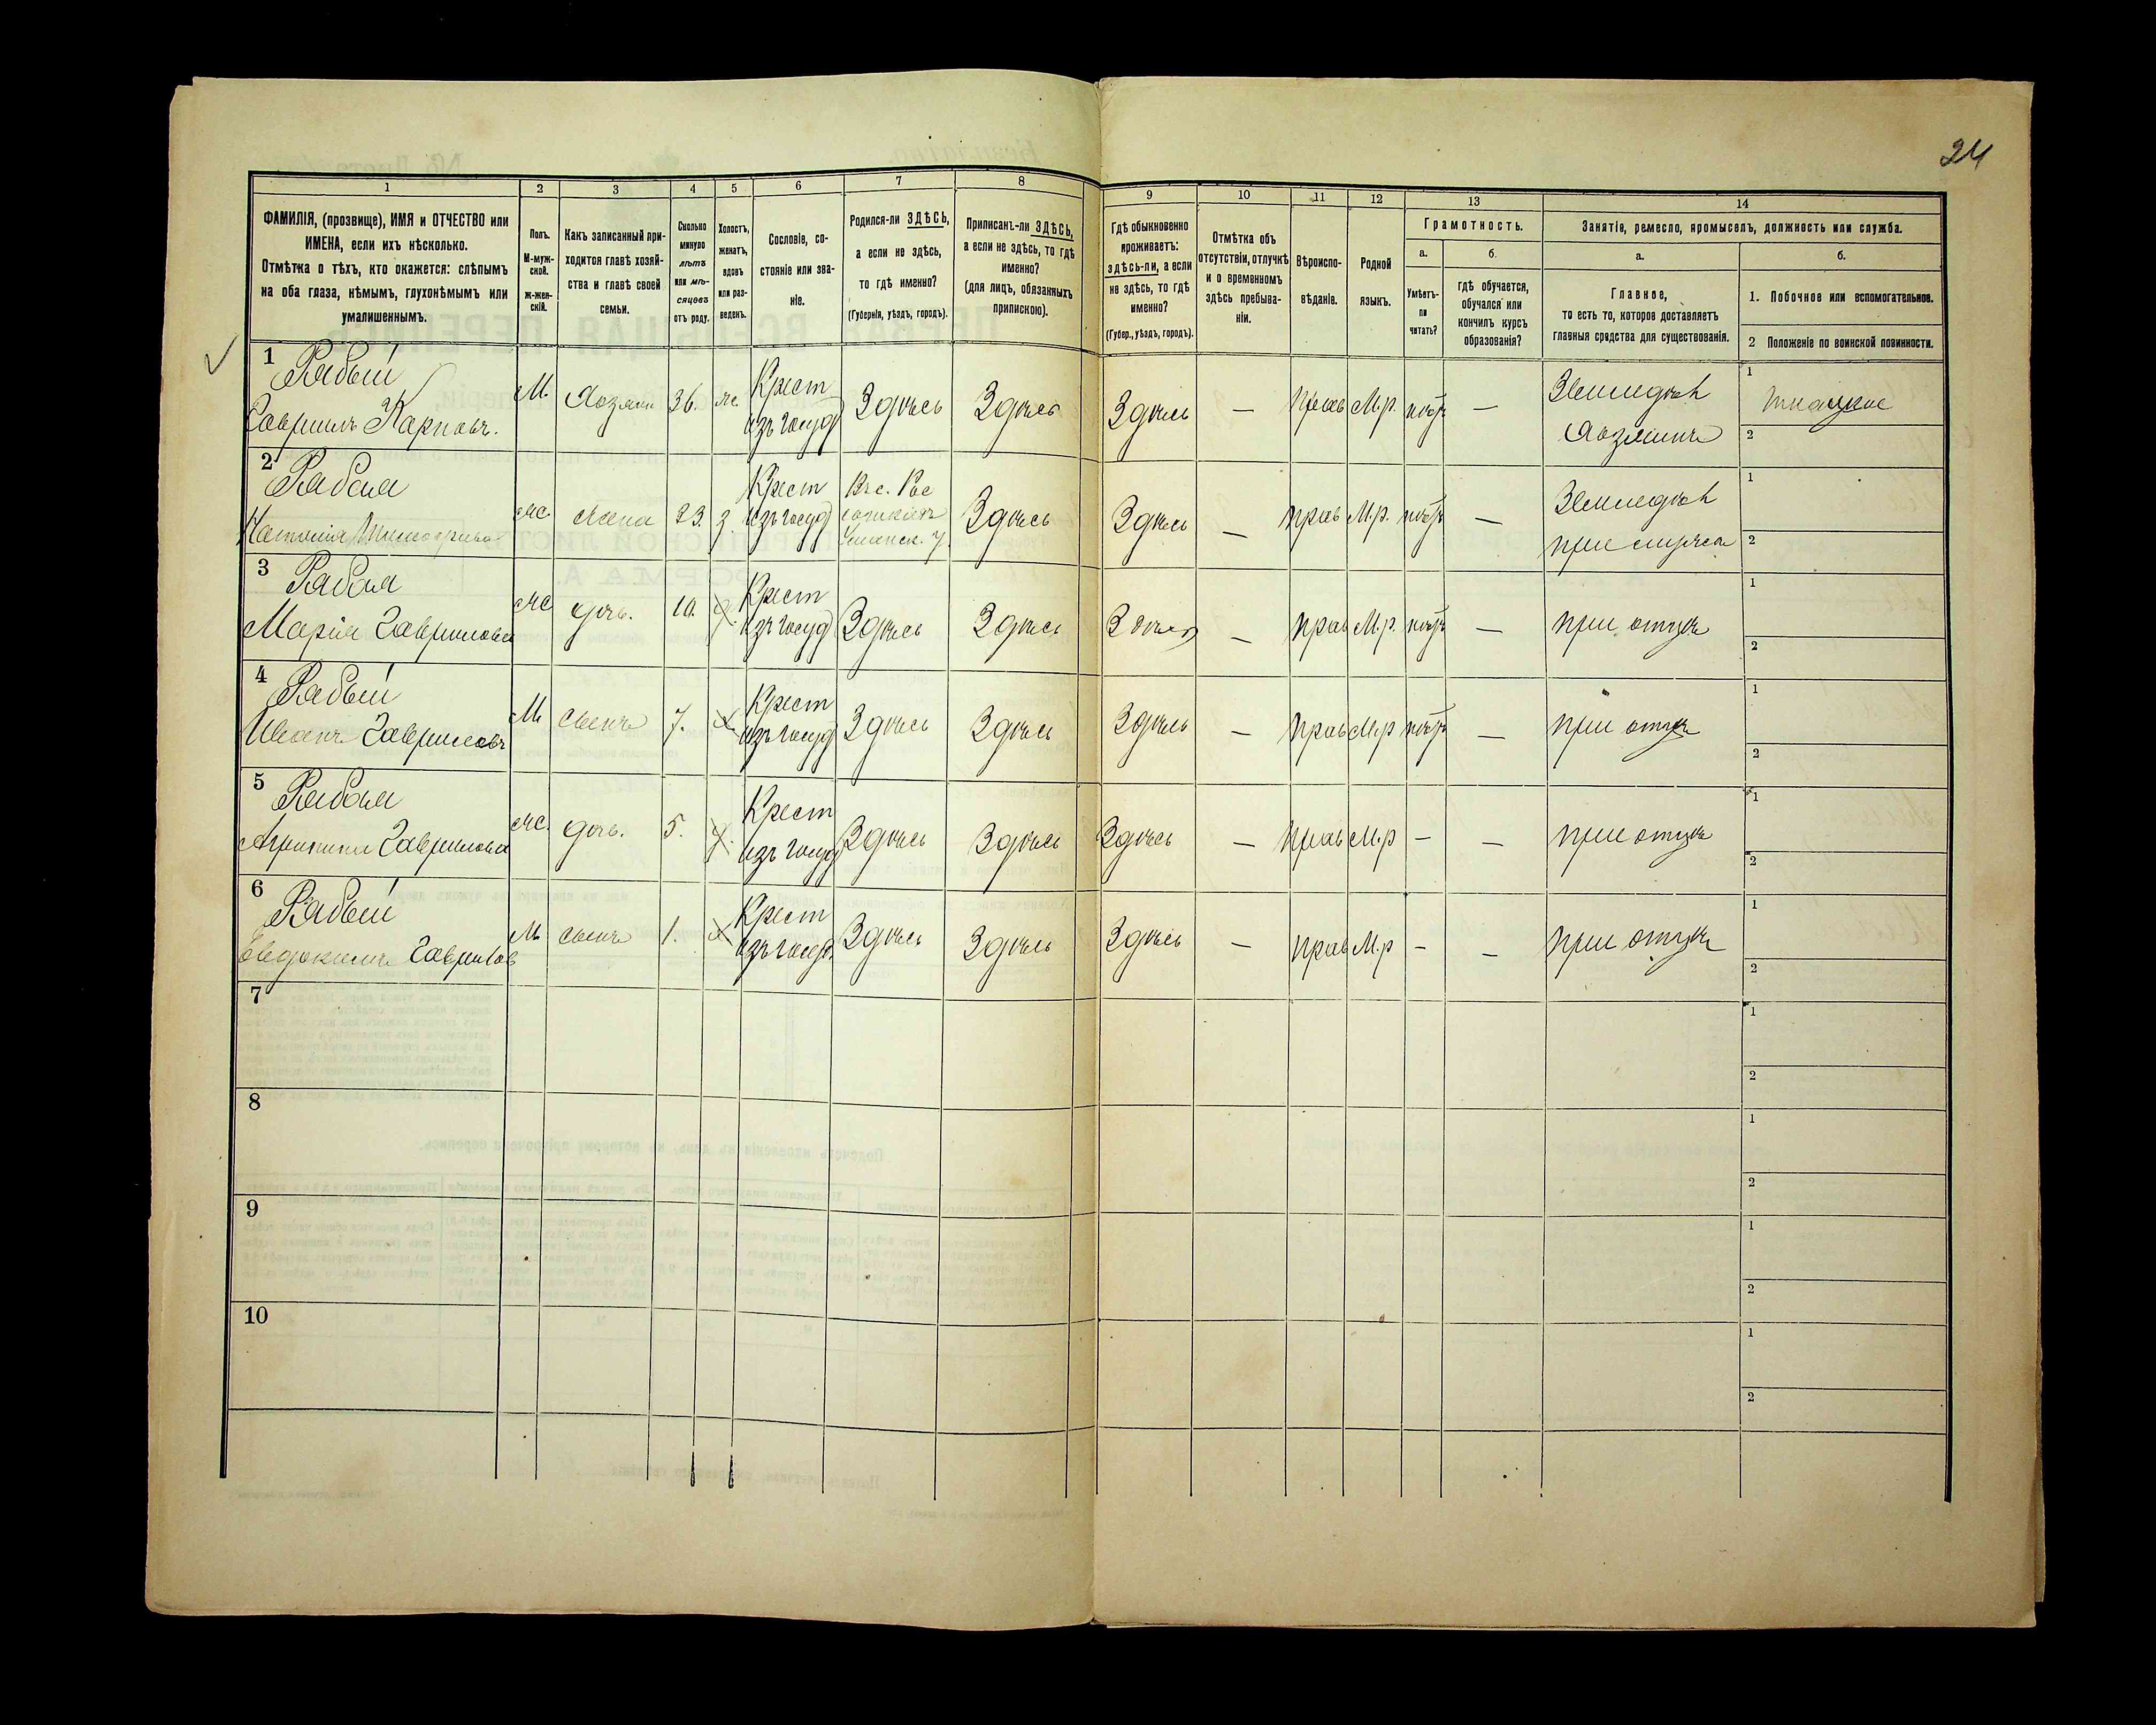 24
1
2
3
4
5
6
7
8
9
10
11
12
13
14
ФАМИЛІЯ, (прозвище), ИМЯ и ОТЧЕСТВО или
ИМЕНА, если ихъ нѣсколько.
Отмѣтка о тѣхъ, кто окажется: слѣпымъ
на оба глаза, нѣмымъ, глухонѣмымъ или
умалишеннымъ.
Полъ.
М-муж-
ской.
ж-жен-
скій.
Какъ записанный при-
ходится главѣ хозяй-
ства и главѣ своей
семьи.
Сколько
минуло
лѣтъ
или мѣ-
сяцевъ
отъ роду.
Холостъ,
женатъ,
вдовъ
или раз-
веденъ.
Сословіе, со-
стояніе или зва-
ніе.
Родился-ли ЗДѢСЬ,
а если не здѣсь,
то гдѣ именно?
(Губернія, уѣздъ, городъ).
Приписанъ-ли ЗДѢСЬ,
а если не здѣсь, то гдѣ
именно?
(для лицъ, обязанныхъ
припискою).
Гдѣ обыкновенно
проживаетъ:
здѣсь-ли, а если
не здѣсь, то гдѣ
именно?
(Губер., уѣздъ, городъ).
Отмѣтка объ
отсутствіи, отлучкѣ
и о временномъ
здѣсь пребыва-
ніи.
Вѣроиспо-
вѣданіе.
Родной
языкъ.
Грамотность.
а.
Умѣетъ-
ли
читать?
б.
гдѣ обучается,
обучался или
кончилъ курсъ
образованія?
Занятіе, ремесло, промыселъ, должность или служба.
а.
Главное,
то есть то, которое доставляетъ
главныя средства для существованія.
б.
1. Побочное или вспомогательное.
2 Положеніе по воинской повинности.
1 Рябый
Гавриилъ Карповъ. М. Хозяин 36. ж. Крест изъ госуд Здѣсь Здѣсь Здѣсь — прав М.р. нѣтъ — Земледѣл Хозяинъ 1 ткацкое 2
2 Рябая
М. жена 23. з. Крест изъ госуд Здѣсь Здѣсь — прав М.р. нѣтъ — Земледѣл при мужѣ 1 2
3 Рябая
Марія Гаврилова ж дочь. 10. Крест изъ госуд Здѣсь Здѣсь Здѣсь — прав М.р. нѣтъ — при отцѣ 1 2
4 Рябый
Иванъ Гавриловъ М сынъ 7. х Крест изъ госуд Здѣсь Здѣсь Здѣсь — прав М.р нѣтъ — при отцѣ 1 2
5 Рябая
Гаврилова ж. дочь. 5. Крест изъ госуд Здѣсь Здѣсь Здѣсь — прав М.р — — при отцѣ 1 2
6 Рябый
Евдокимъ Гаврилов М сынъ 1. х Крест изъ госуд. Здѣсь Здѣсь Здѣсь — прав М.р — — при отцѣ 1 2
7 1 2
8 1 2
9 1 2
10 1 2